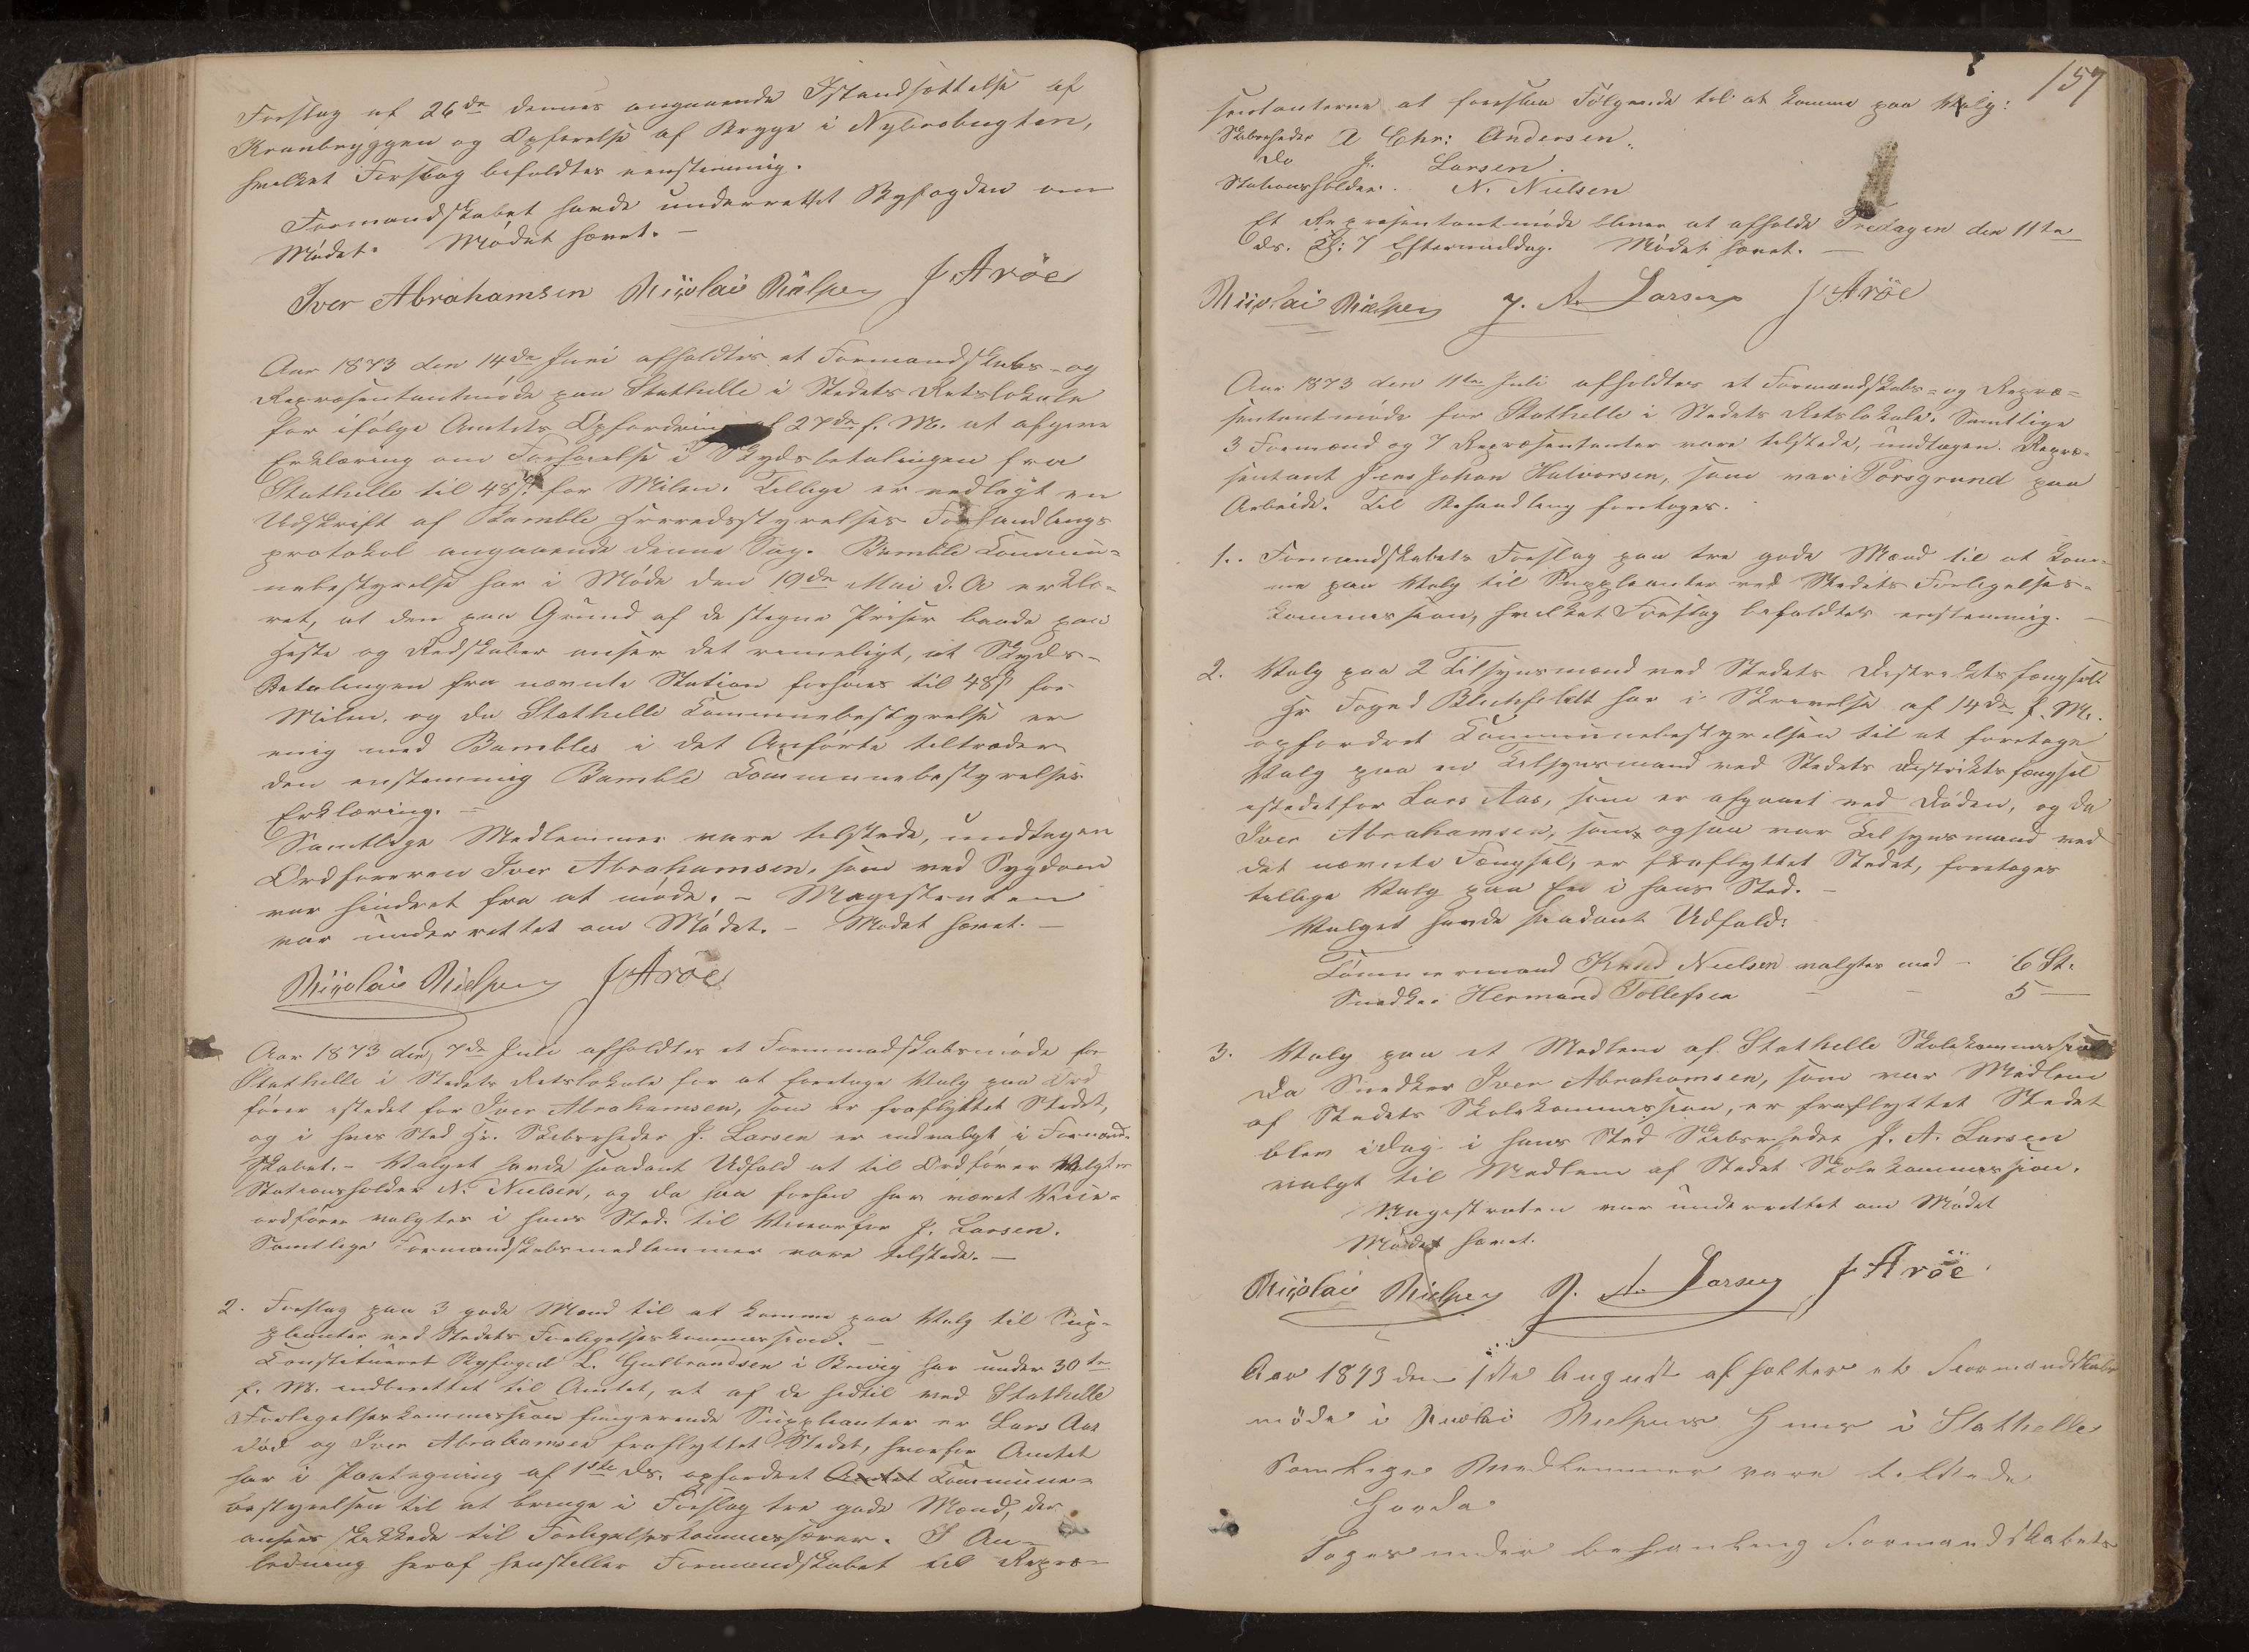 Forslag af 26de dennes angaaende Istandsættelse af
Kranbryggen og Opførelse af Brygge i Nybrobugten,
hvilket Forslag bifaldtes eenstemmig.
Formandskabet havde underrettet Byfogden om
Mødet. Mødet hævet. –
Iver Abrahamsen Nicolai Nielsen J Aröe
Aar 1873 den 14de Juni afholdtes et Formandskabs- og
Repræsentantmøde paa Stathelle i Stedets Retslokale
for ifølge Amtets Opfordring af 27de f. M. at afgive
Erklæring om Forhøielse i Skydsbetalingen fra
Stathelle til 48 ß for Milen. Tillige er vedlagt en
Udskrift af Bamble Herredsstyrelses Forhandlings
protokol angaaende denne Sag. Bamble Commu-
nebestyrelse har i Møde den 19de Mai d. A erklæ-
ret, at den paa Grund af de stegne Priser baade paa
Heste og Redskaber anser det rimeligt, at Skyds-
Betalingen fra nævnte Station forhøies til 48 ß for
Milen, og da Stathelle Communebestyrelse er
enig med Bambles i det Anførte tiltræder
den enstemmig Bamble Communebestyrelses
Erklæring. –
Samtlige Medlemmer vare tilstede, undtagen
Ordføreren Iver Abrahamsen, som ved Sygdom
var hindret fra at møde. – Magistraten
var underrettet om Mødet. – Mødet hævet. –
Nicolai Nielsen J Aröe
Aar 1873 den 7de Juli afholdtes et Formandskabsmøde for
Stathelle i Stedets Retslokale for at foretage Valg paa Ord
fører istedet for Iver Abrahamsen, som er fraflyttet Stedet,
og i hvis Sted Hr. Skibsrheder J. Larsen er indvalgt i Formand-
skabet. – Valget havde saadant Udfald at til Ordfører Valgtes
Stationsholder N. Nielsen, og da han forhen har været Vice-
ordfører valgtes i hans Sted til Viceordfør J. Larsen.
Samtlige Formandskabsmedlemmer vare tilstede. –
2. Forslag paa 3 gode Mænd til at komme paa Valg til Sup-
pleanter ved Stedets Forligelseskommission. –
Constitueret Byfoged L. Gulbrandsen i Brevig har under 30te
f. M. indberettet til Amtet, at af de hidtil ved Stathelle
Forligelseskommission fungerende Suppleanter er Lars Aas
død og Iver Abrahamsen fraflyttet Stedet, hvorfor Amtet
har i Paategning af 1ste ds. opfordret Amtet Commune-
bestyrelsen til at bringe i Forslag tre gode Mænd, der
ansees skikkede til Forligelseskommissærer. I An-
ledning heraf henstiller Formandskabet til Repræ-
157
sentanterne at foreslaa Følgende til at komme paa Valg:
Skibsrheder A Chr: Andersen.
Do J. Larsen.
Stationsholder. N. Nielsen
Et Repræsentantmøde bliver at afholde Fredagen den 11te
ds. Kl: 7 Eftermiddag. Mødet hævet. –
Nicolai Nielsen J. A. Larsen J Aröe
Aar 1873 den 11te Juli afholdtes et Formandskabs- og Repræ-
sentantmøde for Stathelle i Stedets Retslokale. Samtlige
3 Formænd og 7 Repræsentanter vare tilstede, undtagen Repræ-
sentant Jens Johan Halvorsen, som var i Porsgrund paa
Arbeide. Til Behandling foretages.
1. Formandskabets Forslag paa tre gode Mænd til at kom-
me paa Valg til Suppleanter ved Stedets Forligelses-
kommission, hvilket Forslag bifaldtes enstemmig. –
2. Valg paa 2 Tilsynsmænd ved Stedets Distriktsfængsel
Hr Foged Blichfeldt har i Skrivelse af 14de f. M.
opfordret Communebestyrelsen til at foretage
Valg paa en Tilsynsmand ved Stedets Distriktsfængsel
istedetfor Lars Aas, som er afgaaet ved Døden, og da
Iver Abrahamsen, som ogsaa var Tilsynsmand ved
det nævnte Fængsel, er fraflyttet Stedet, foretages
tillige Valg paa En i hans Sted. –
Valget havde saadant Udfald:
Tømmermand Knud Nielsen valgtes med – 6 St.
Snedker Hermand Tollefsen – – 5 –
3. Valg paa et Medlem af Stathelle Skolekommission
Da Snedker Iver Abrahamsen, som var Medlem
af Stedets Skolekommission, er fraflyttet Stedet
blev idag i hans Sted Skibsrheder J. A. Larsen
valgt til Medlem af Stedet Skolekommission.
Magistraten var underrettet om Mødet
Mødet hævet.
Nicolai Nielsen J. A. Larsen J Aröe
Aar 1873 den 1ste August afholtes et Formandskabs
möde i Nicolai Nielsens Huus i Stathelle
Samtlige Medlemmer vare tilstede
Toges under behanling Formandskabets